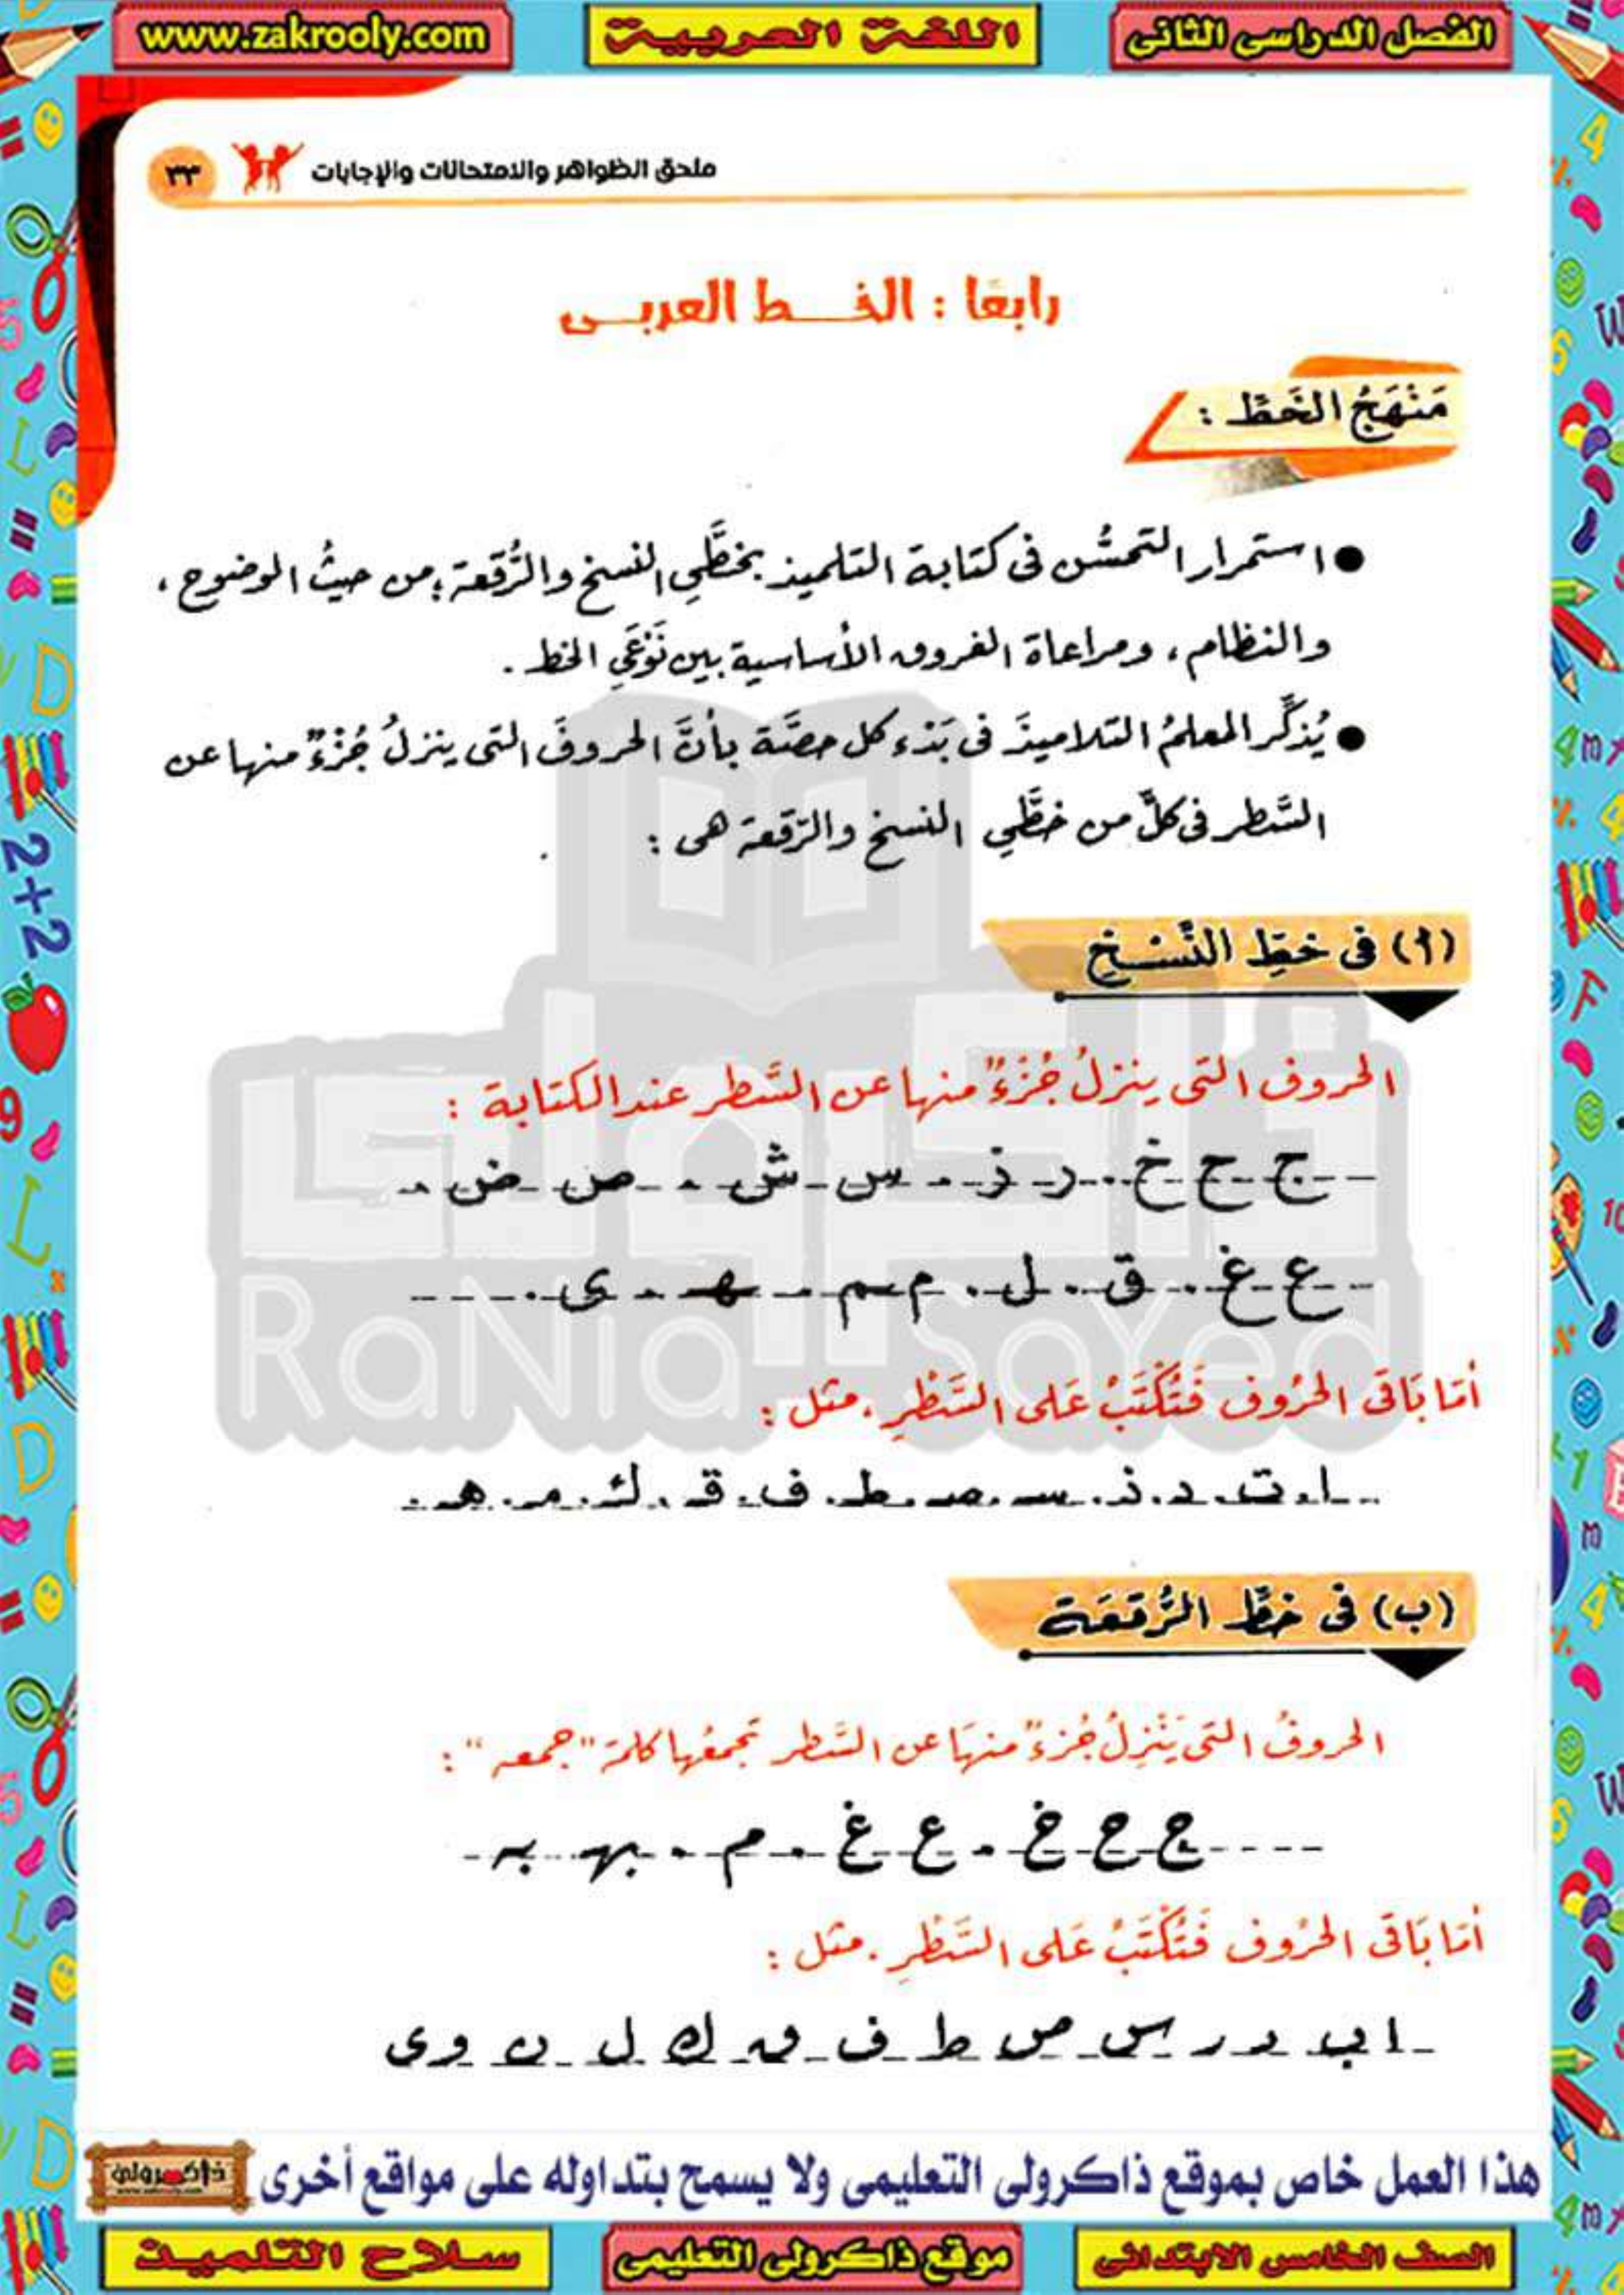 الفصل الدراسى الثانى
اللغة العربية
www.zakrooly.com
ملحق الظواهر والامتحانات والإجابات
٣٣
رابعًا : الخــط العربــى
مَنْهَجُ الخَطِّ :
● استمرار التحسُّن فى كتابة التلميذ بخطَّىِ النسخ والرُّقعة ؛ من حيثُ الوضوح ،
والنظام ، ومراعاة الفروق الأساسية بين نَوْعَىِ الخط .
● يُذكِّر المعلمُ التلاميذَ فى بَدْء كل حصَّة بأنَّ الحروفَ التى ينزلُ جُزْءٌ منها عن
السَّطر فى كلٍّ من خطَّىِ النسخ والرُّقعة هى :
(أ) فى خطِّ النَّسْخِ
الحروف التى ينزلُ جُزْءٌ منها عن السَّطر عند الكتابة :
ج ح خ . ر ز . س ش . ص ض .
ع غ . ق . ل . م ـم . ـهـ . ى .
أمَّا بَاقى الحرُوف فَتُكْتَبُ عَلى السَّطْرِ . مثل :
ا . ت . د . ذ . سـ . صـ . ط . ف . ق . ك . مـ . هـ .
(ب) فى خطِّ الرُّقعَة
الحروفُ التى يَنْزِلُ جُزءٌ منهَا عن السَّطر تجمعُها كلمة "جمعه" :
ج ح خ . ع غ . م . ـهـ ـه
أمَّا بَاقى الحرُوف فَتُكْتَبُ عَلى السَّطْرِ . مثل :
ا ب د ر س ص ط ف ق ك ل ن و ى
هذا العمل خاص بموقع ذاكرولى التعليمى ولا يسمح بتداوله على مواقع أخرى
ذاكرولى
الصف الخامس الابتدائى
موقع ذاكرولى التعليمى
سلاح التلميذ
RaNia SaYed